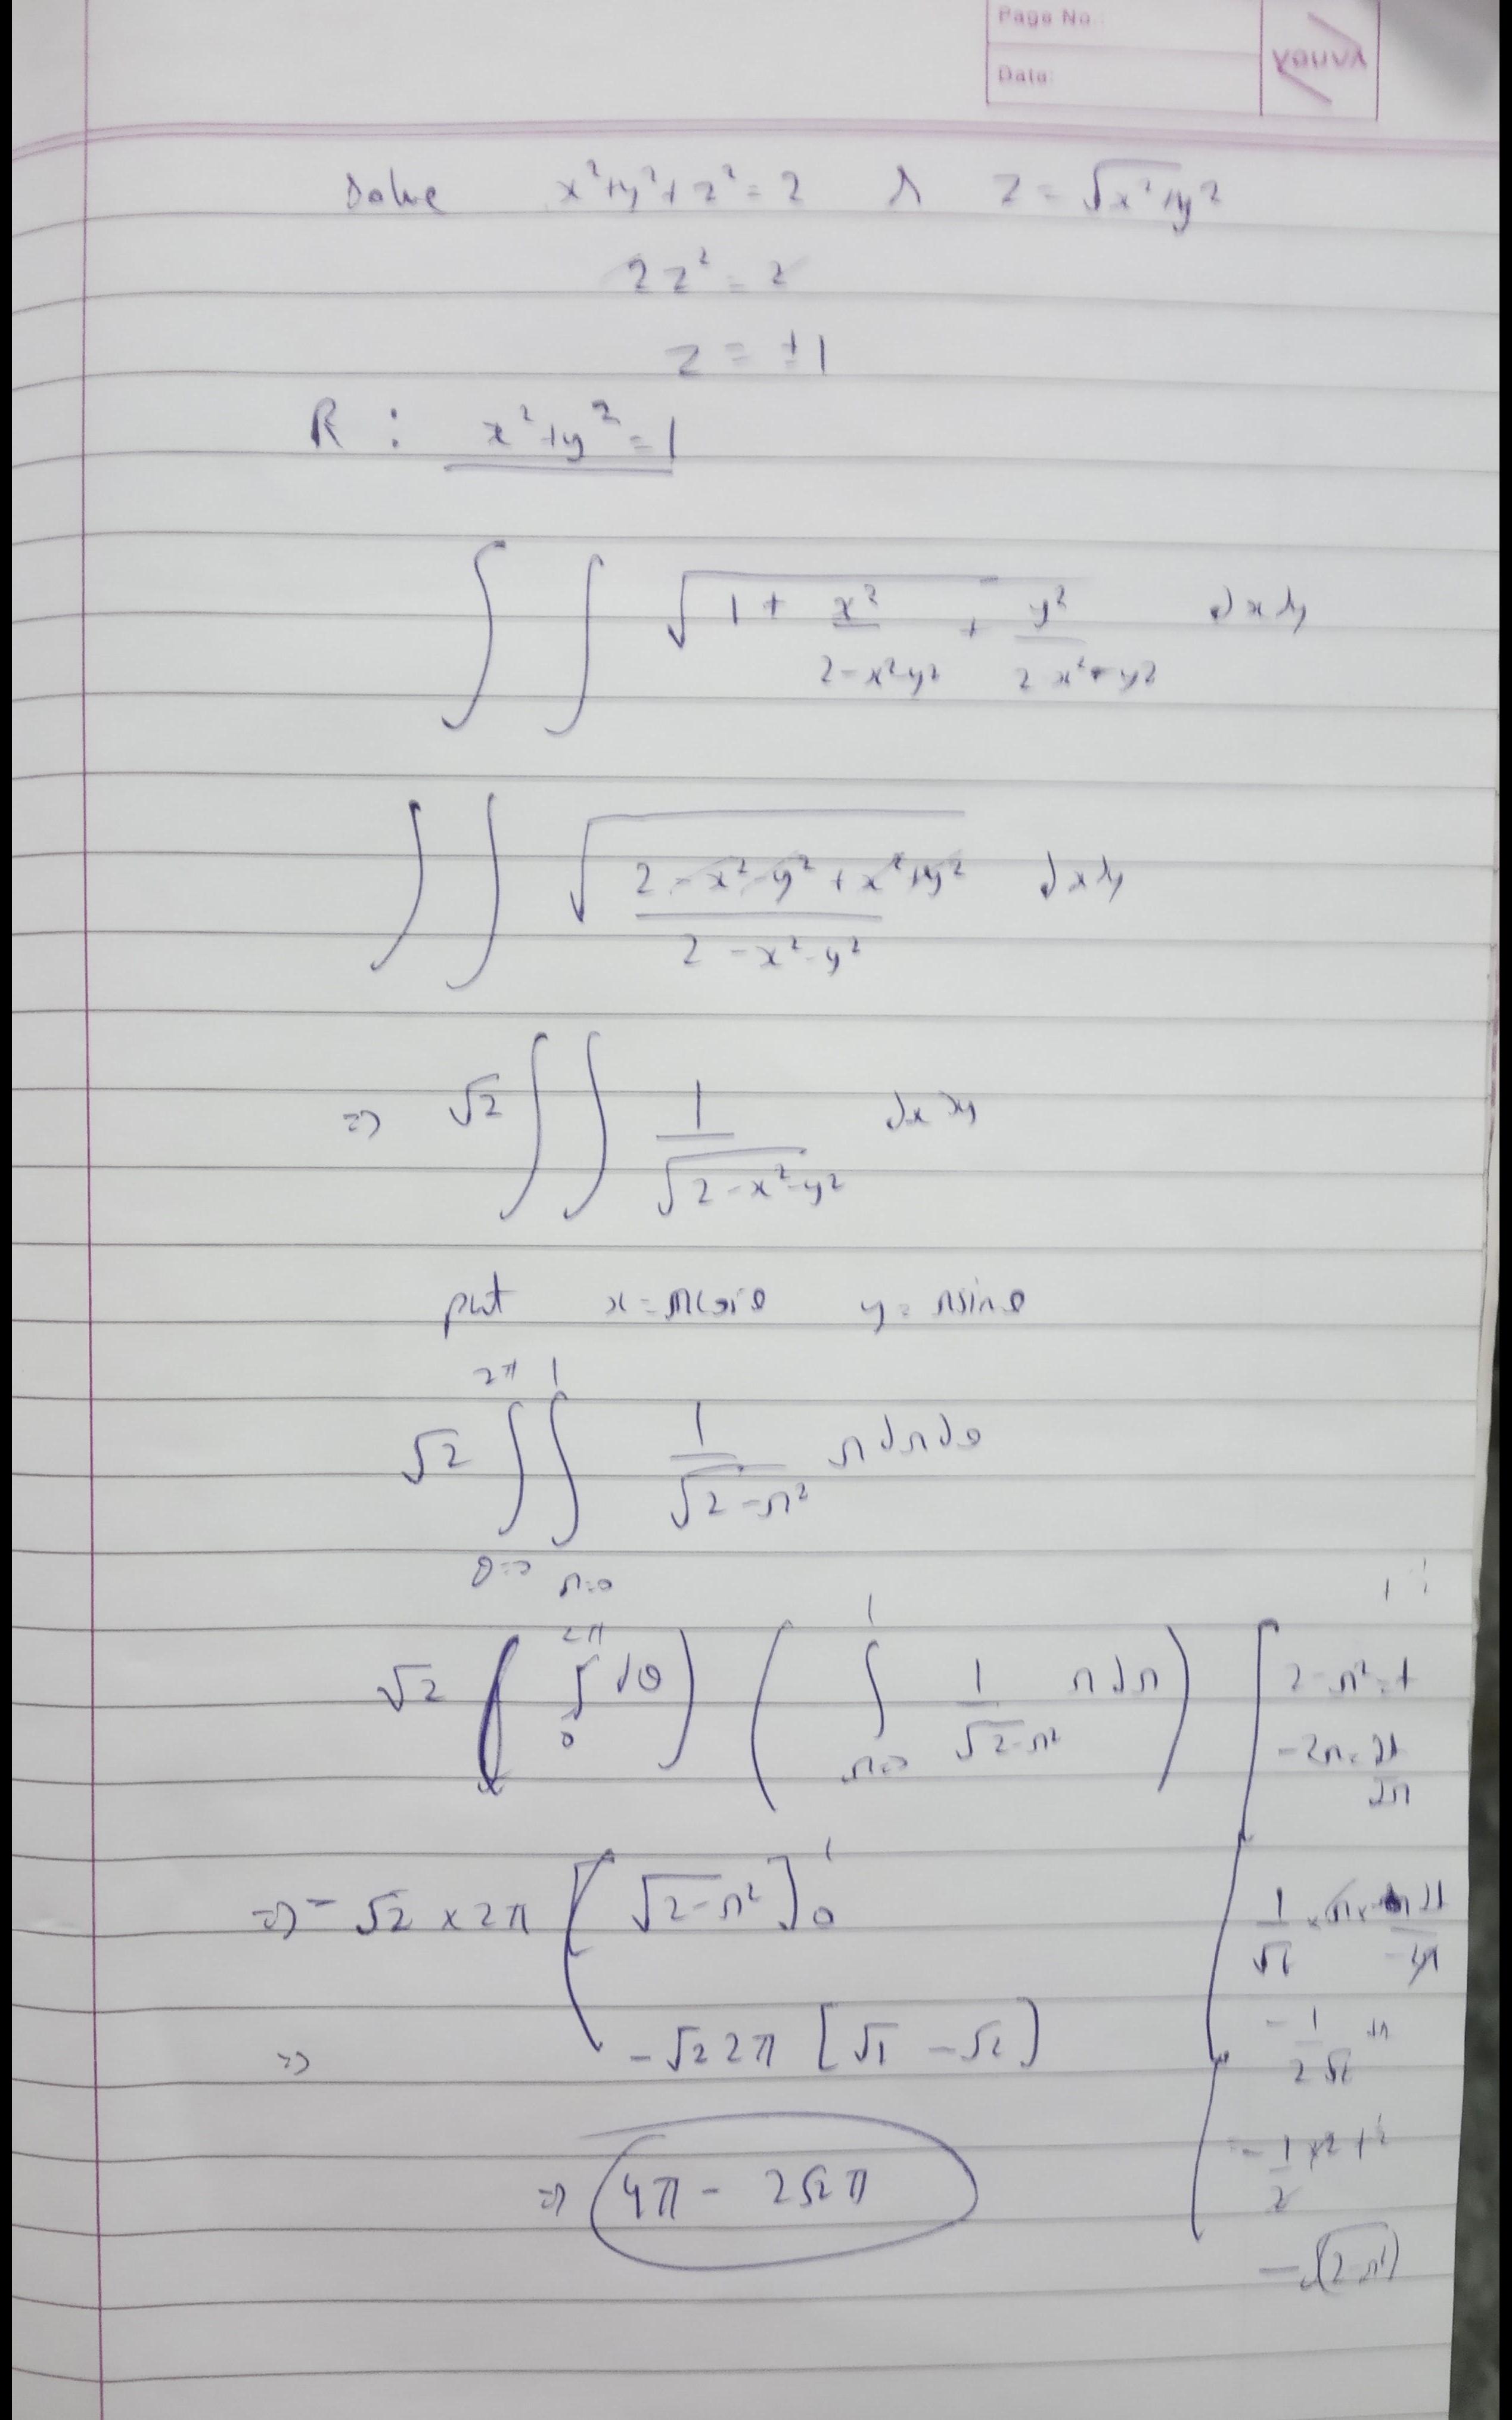 Page No.:
Date:
YOUVA
Solve x²+y²+z²=2 & z=√x²+y²
2z²=2
z=±1
R : x²+y²=1
∫∫ √1+ x²/2-x²-y² + y²/2-x²-y² dxdy
∫∫ √2-x²-y²+x²+y²/2-x²-y² dxdy
=> √2 ∫∫ 1/√2-x²-y² dxdy
put x=rcosθ y=rsinθ
√2 ∫θ=0 2π ∫r=0 1 1/√2-r² r dr dθ
√2 ( ∫0 2π dθ ) ( ∫r=0 1 1/√2-r² r dr )
2-r²=t
-2r=dt/dr
=> -√2 × 2π ( [√2-r²]0 1
1/√t × r × dt/-2r
=> -√2 2π [√1 -√2]
-1/2√t
=> 4π - 2√2π
= -1/2 ×2 t½
-√(2-r²)